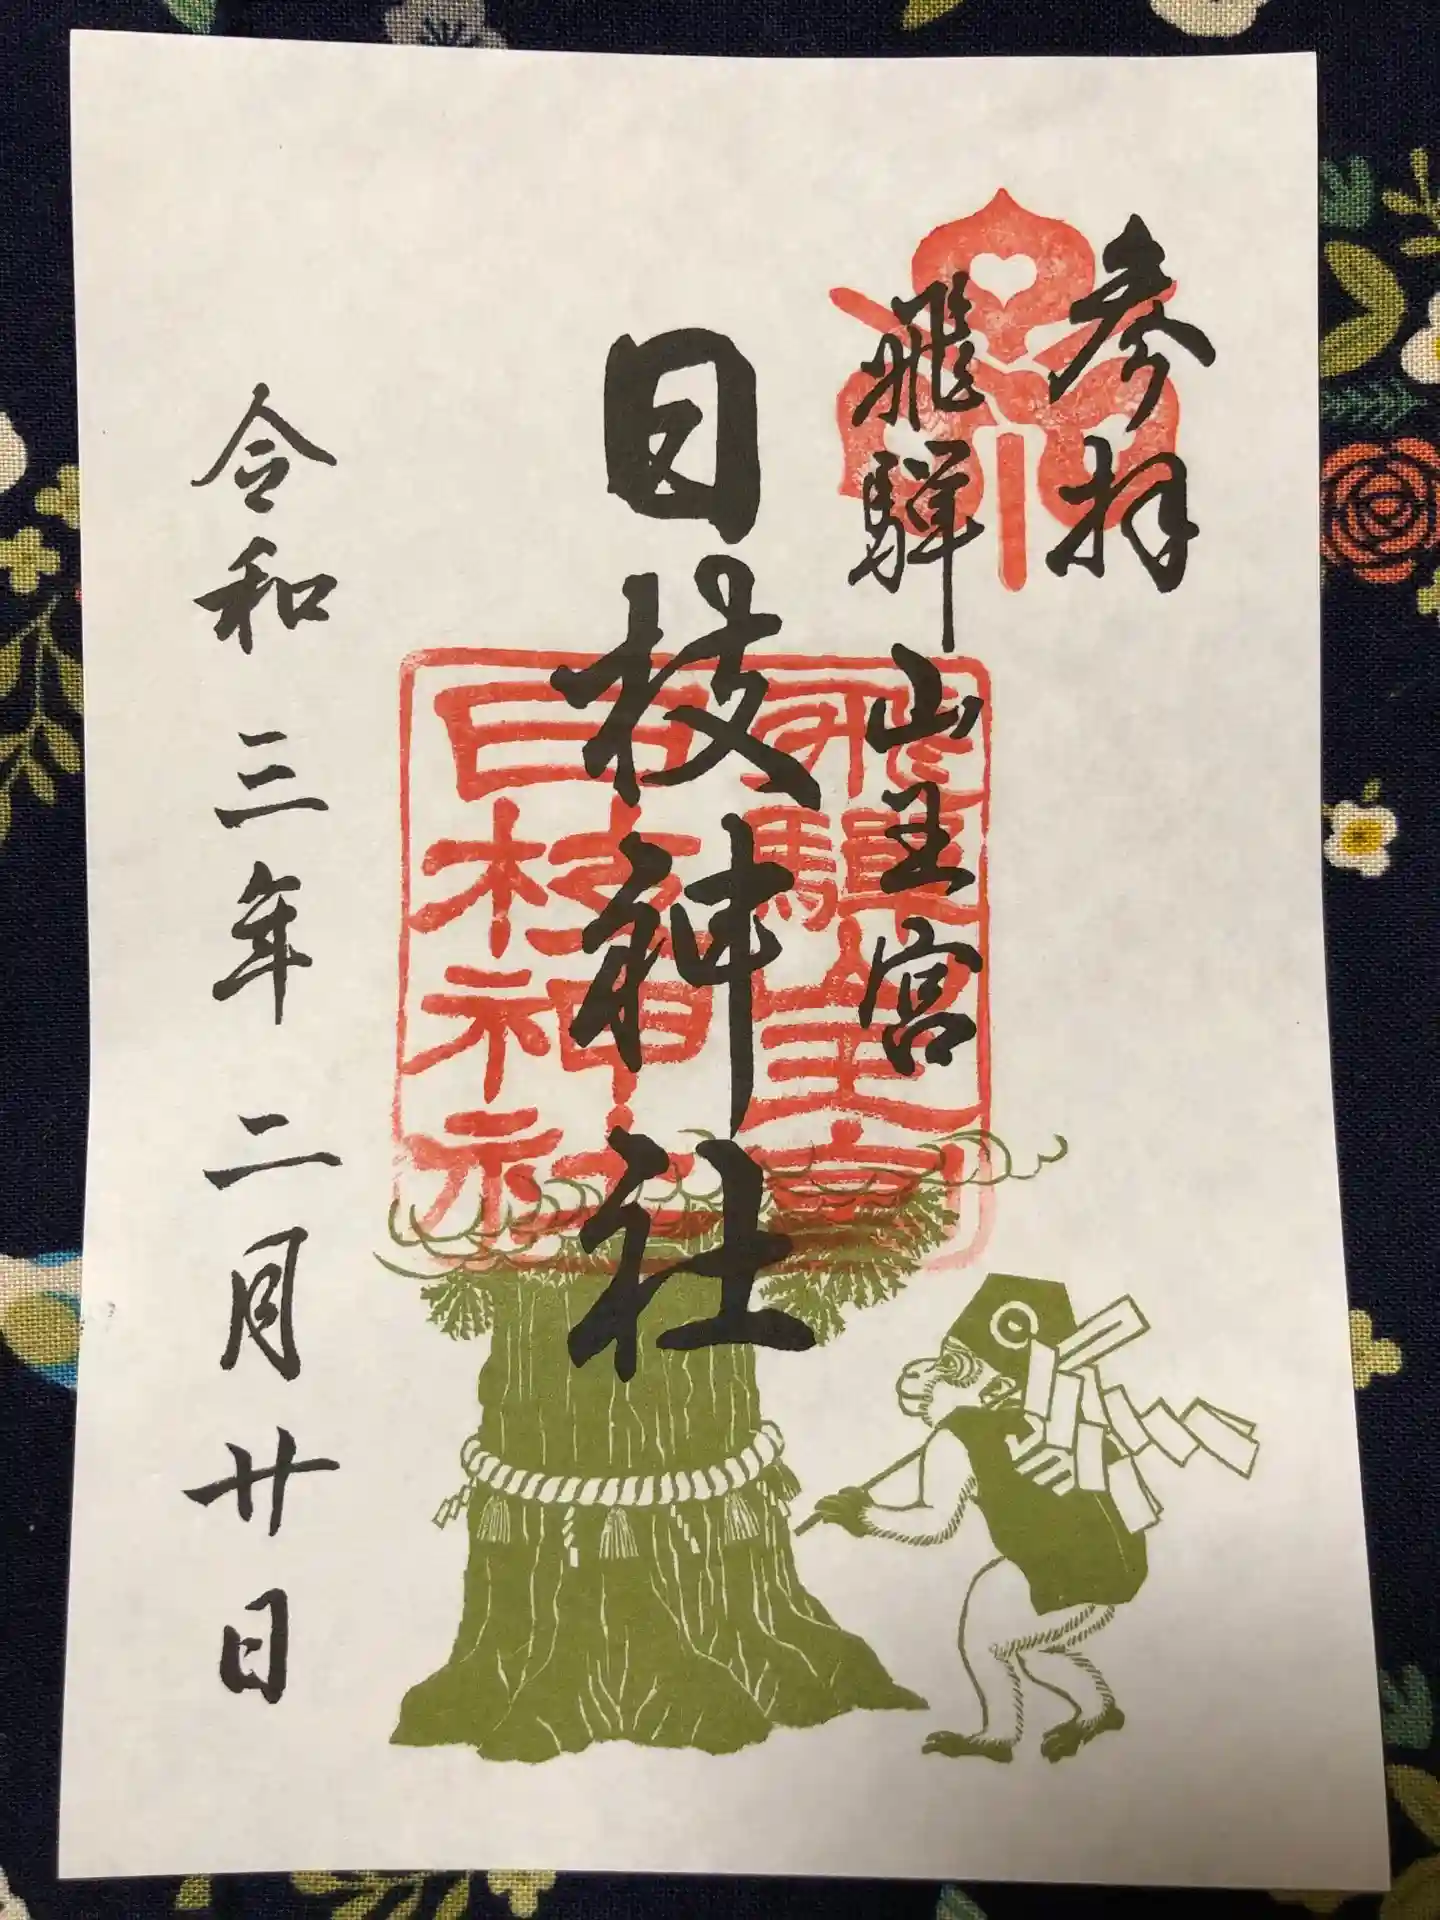 参拝
飛騨山王宮
日枝神社
令和三年二月廿日
飛騨山王宮
日枝神社